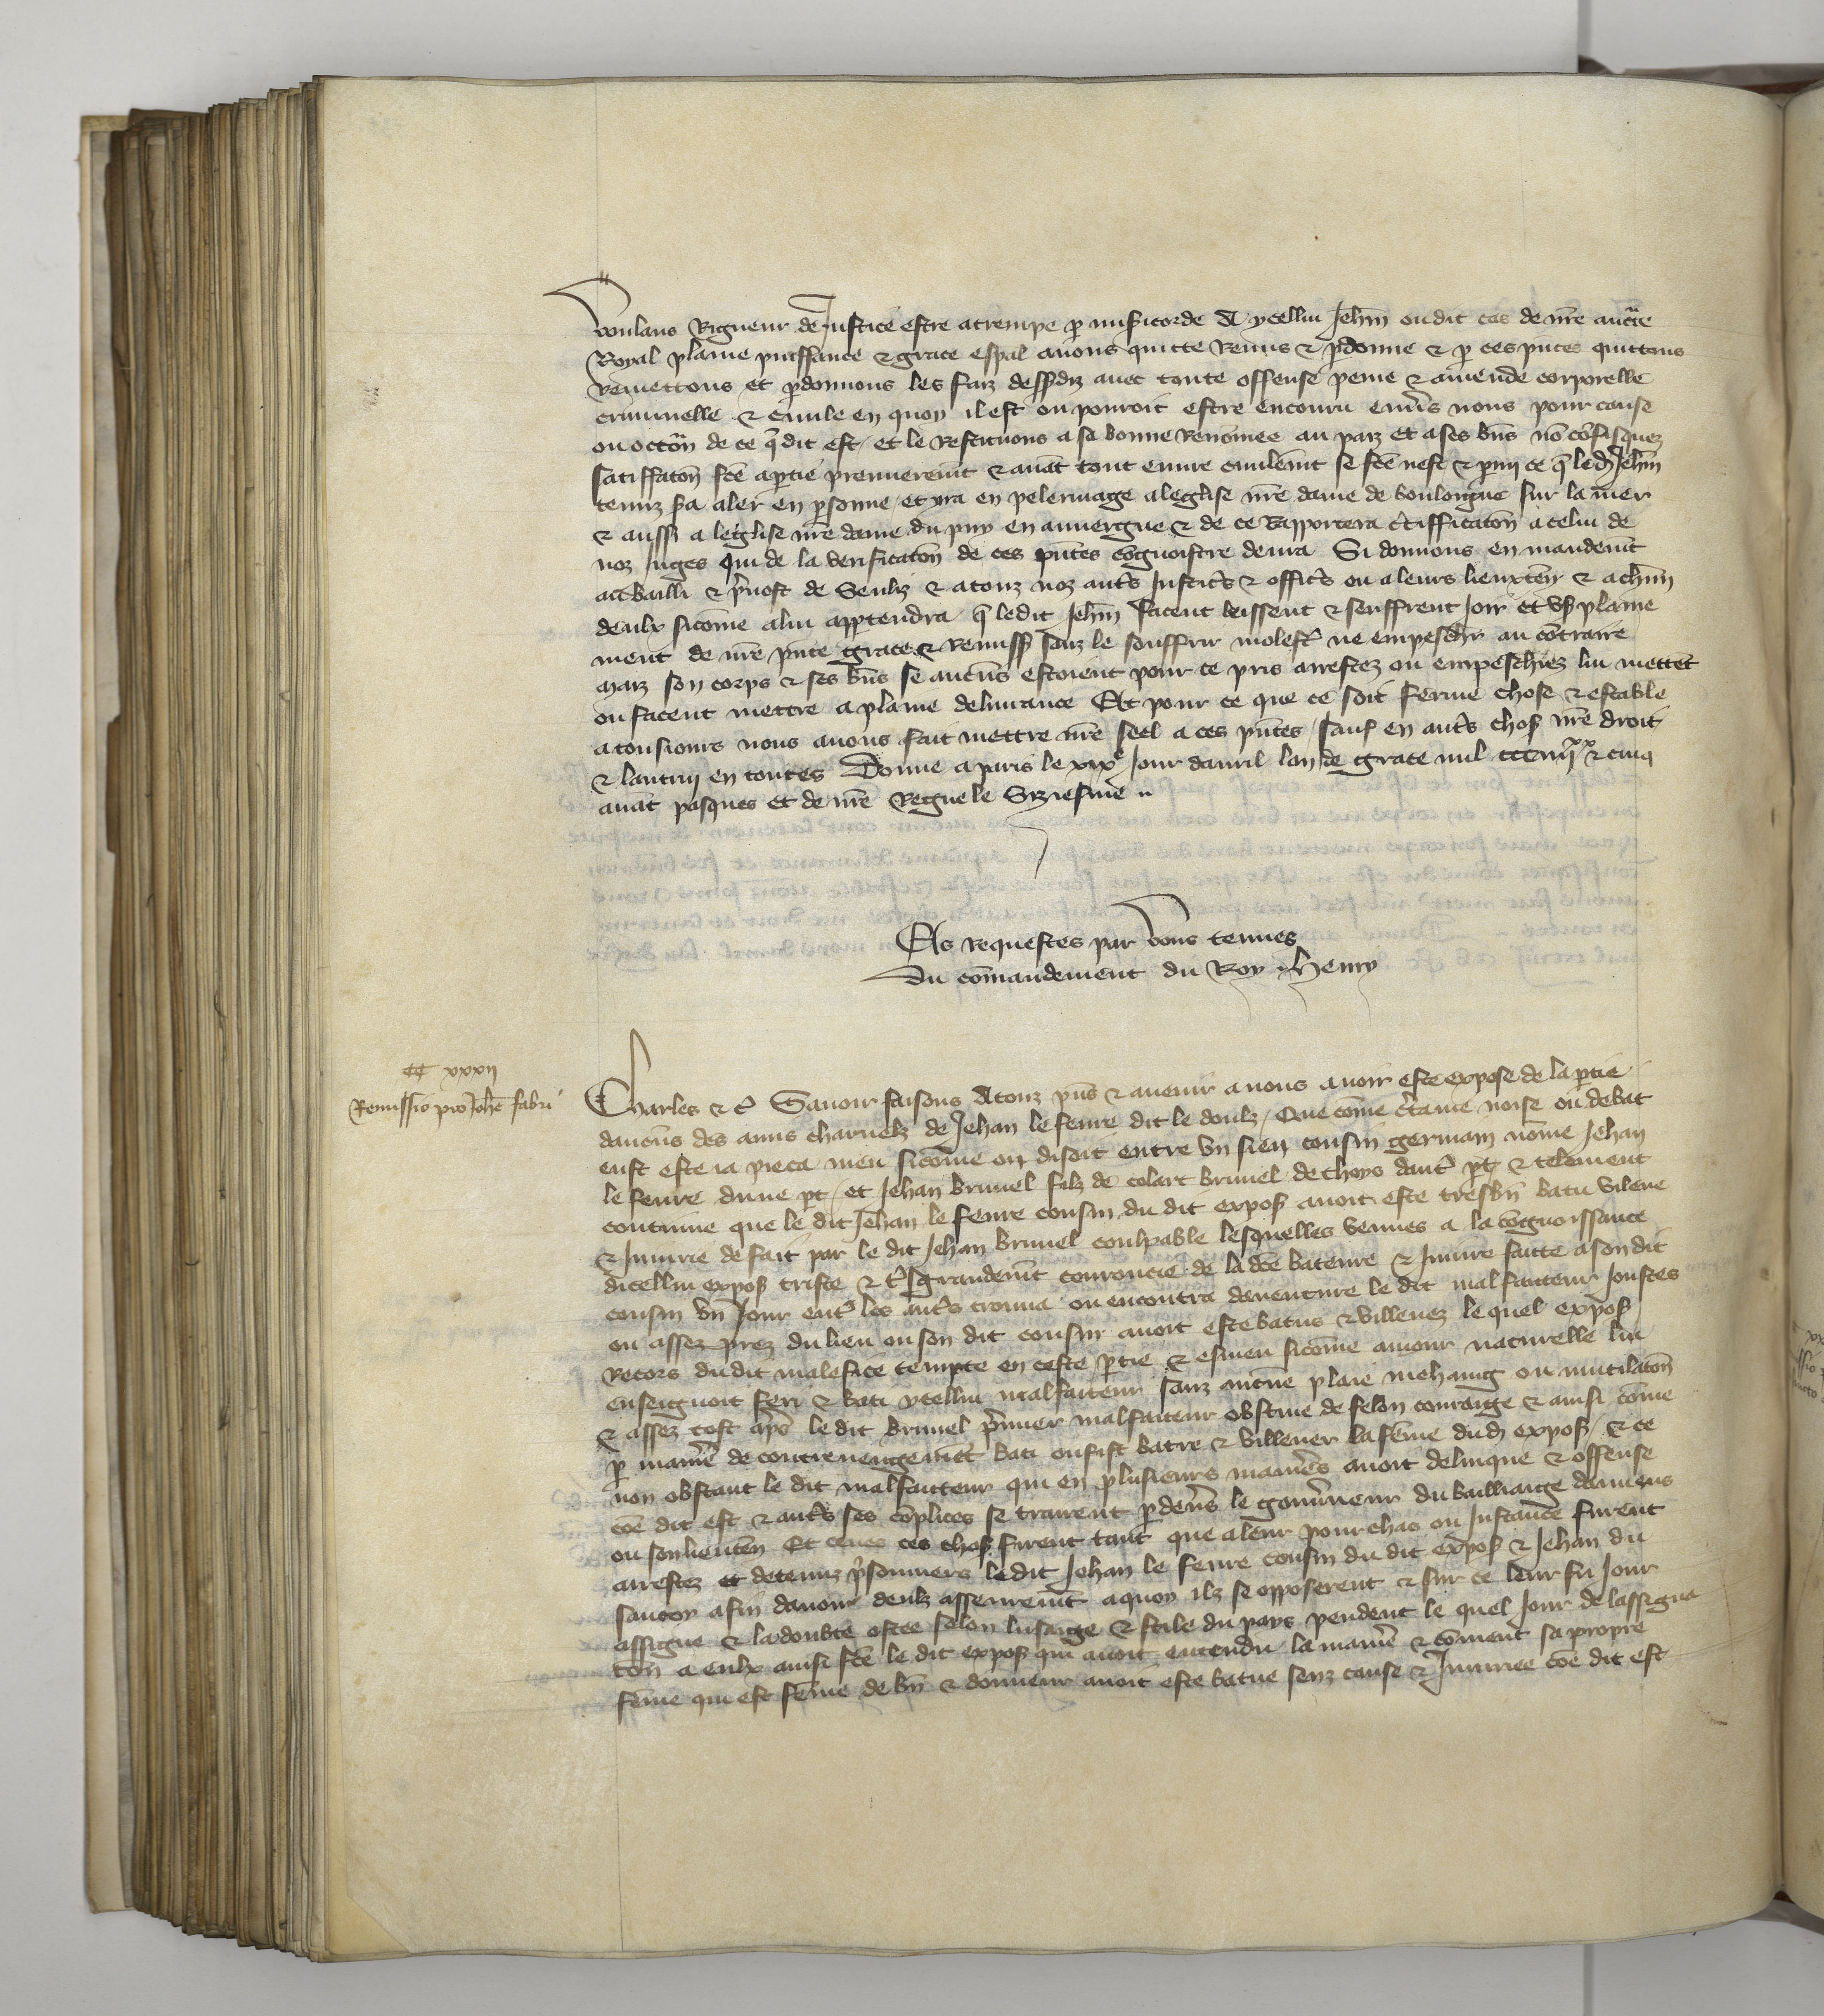 voulans Rigueur de Justice estre atrempe p misicorde A ycellui Jehm oudit cas de nre auctie
Royal plaine puissance & grace espal auons quitte Remis & pdonne & p ces pntes quittons
Remettons et pdonnons les faiz dessdiz auec toute offense peine & amende corporelle
criminelle & ciuile en quoy il est ou pourroit estre encouru enuers nous pour cause
ou occon de ce q dit est et le Restituons a sa bonne Renomee au pais et a ses bns no cofisquez
satiffacon fce a ptie premierement & auat tout euure ciuilemt se fce nest & pmy ce q led Jehm
tenuz sa aler en psonne et yra en pelerinage a leglise nre dame de boulongne sur la mer
& aussi a leglise nre dame du puy en auuergne & de ce Rapportera ctifficacon a celui de
noz Juges qui de la verificacon de ces pntes cognoistre deura Si donnons en mandemt
au bailli & puost de Senliz & a touz noz auts Justics & offics ou a leurs lieuxten & a chun
deulx sicome a lui apptendra q ledit Jehm facent laissent & seuffrent Joir et vs plaine
ment de nre pnte grace & Remiss sanz le souffrir molest ne empeschr au contraire
maiz son corps & ses bns se aucuns estoient pour ce pris arrestez ou empeschiez lui mettet
ou facent mettre a plaine deliurance Et pour ce que ce soit ferme chose & estable
a tousiours nous auons fait mettre nre seel a ces pntes sauf en auts chos nre droit
& lautruy en toutes Donne a paris le xixe Jour dauril lan de grace mil ccciiijxx & cinq
auat pasques et de nre Regne le Siziesme
Es requestes par vous tenues
du comandement du Roy Henry
CC xxxij
Remissio pro Johe fabri
Charles & c Sauoir faisons A touz pns & auenir a nous auoir este expose de la ptie
daucuns des amis charnelz de Jehan le feure dit le doulz Que come ctaine noise ou debat
eust este ia pieca meu sicome on disoit entre vn sien cousin germain nome Jehan
le feure dune pt et Jehan bruuel filz de colart bruuel de thoys daut pt & telement
contiue que le dit Jehan le feure cousin du dit expos auoit este tresbn batu vilene
& Iniurie de fait par le dit Jehan bruuel coulpable lesquelles venues a la cognoissance
dicellui expos triste & tsgrandemt courroucie de la dce bateure & Iniure faitte a son dit
cousin vn Jour ent les auts trouua ou encontra dauenture le dit malfaitteur Joustes
ou assez prez du lieu ou son dit cousin auoit este batus & villenez le quel expos
Recors du dit malefice tempte en ceste ptie & esmeu sicome amour naturelle lui
enseignoit feri & bati ycellui malfaiteur sanz aucune plaie mehaing ou mutilacon
& assez tost aps le dit bruuel pmier malfaiteur obstine de felon couraige & ainsi come
p maniere de contreuengemet bati ou fist batre & villener la feme dud expos & ce
non obstant le dit malfaitteur qui en plusieurs manies auoit delinque & offense
coe dit est & auts ses coplices se trairent pdeus le gouuneur du bailliaige damiens
ou son lieuten Et ces chos furent tant que a leur pourchas ou Instance furent
arrestez et detenuz psonniers ledit Jehan le feure cousin du dit expos & Jehan du
sautoy afin dauoir deulz asseuremt a quoy ilz se opposerent & sur ce leur fu Jour
assigne & la doubte ostee selon lusaige & stile du pays pendent le quel Jour de lassigna
con a eulx ainsi fce le dit expos qui auoit entendu la manie & coment sa propre
feme qui est feme de bn & donneur auoit este batue senz cause & Iniuriee coe dit est